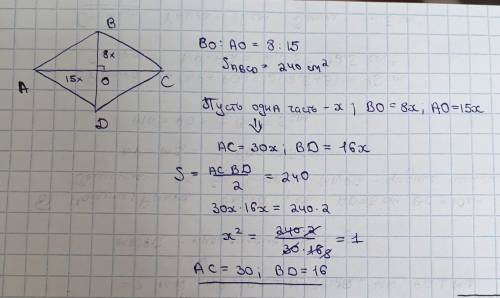 B
8x
15x
O
A
C
D
BO : AO = 8 : 15
S ABCD = 240 cm²
Пусть одна часть - x ; BO = 8x, AO = 15x
⇓
AC = 30x ; BD = 16x
S = AC BD / 2 = 240
30x · 16x = 240 · 2
x² = 240 · 2 / 30 · 16 8 = 1
AC = 30 ; BD = 16